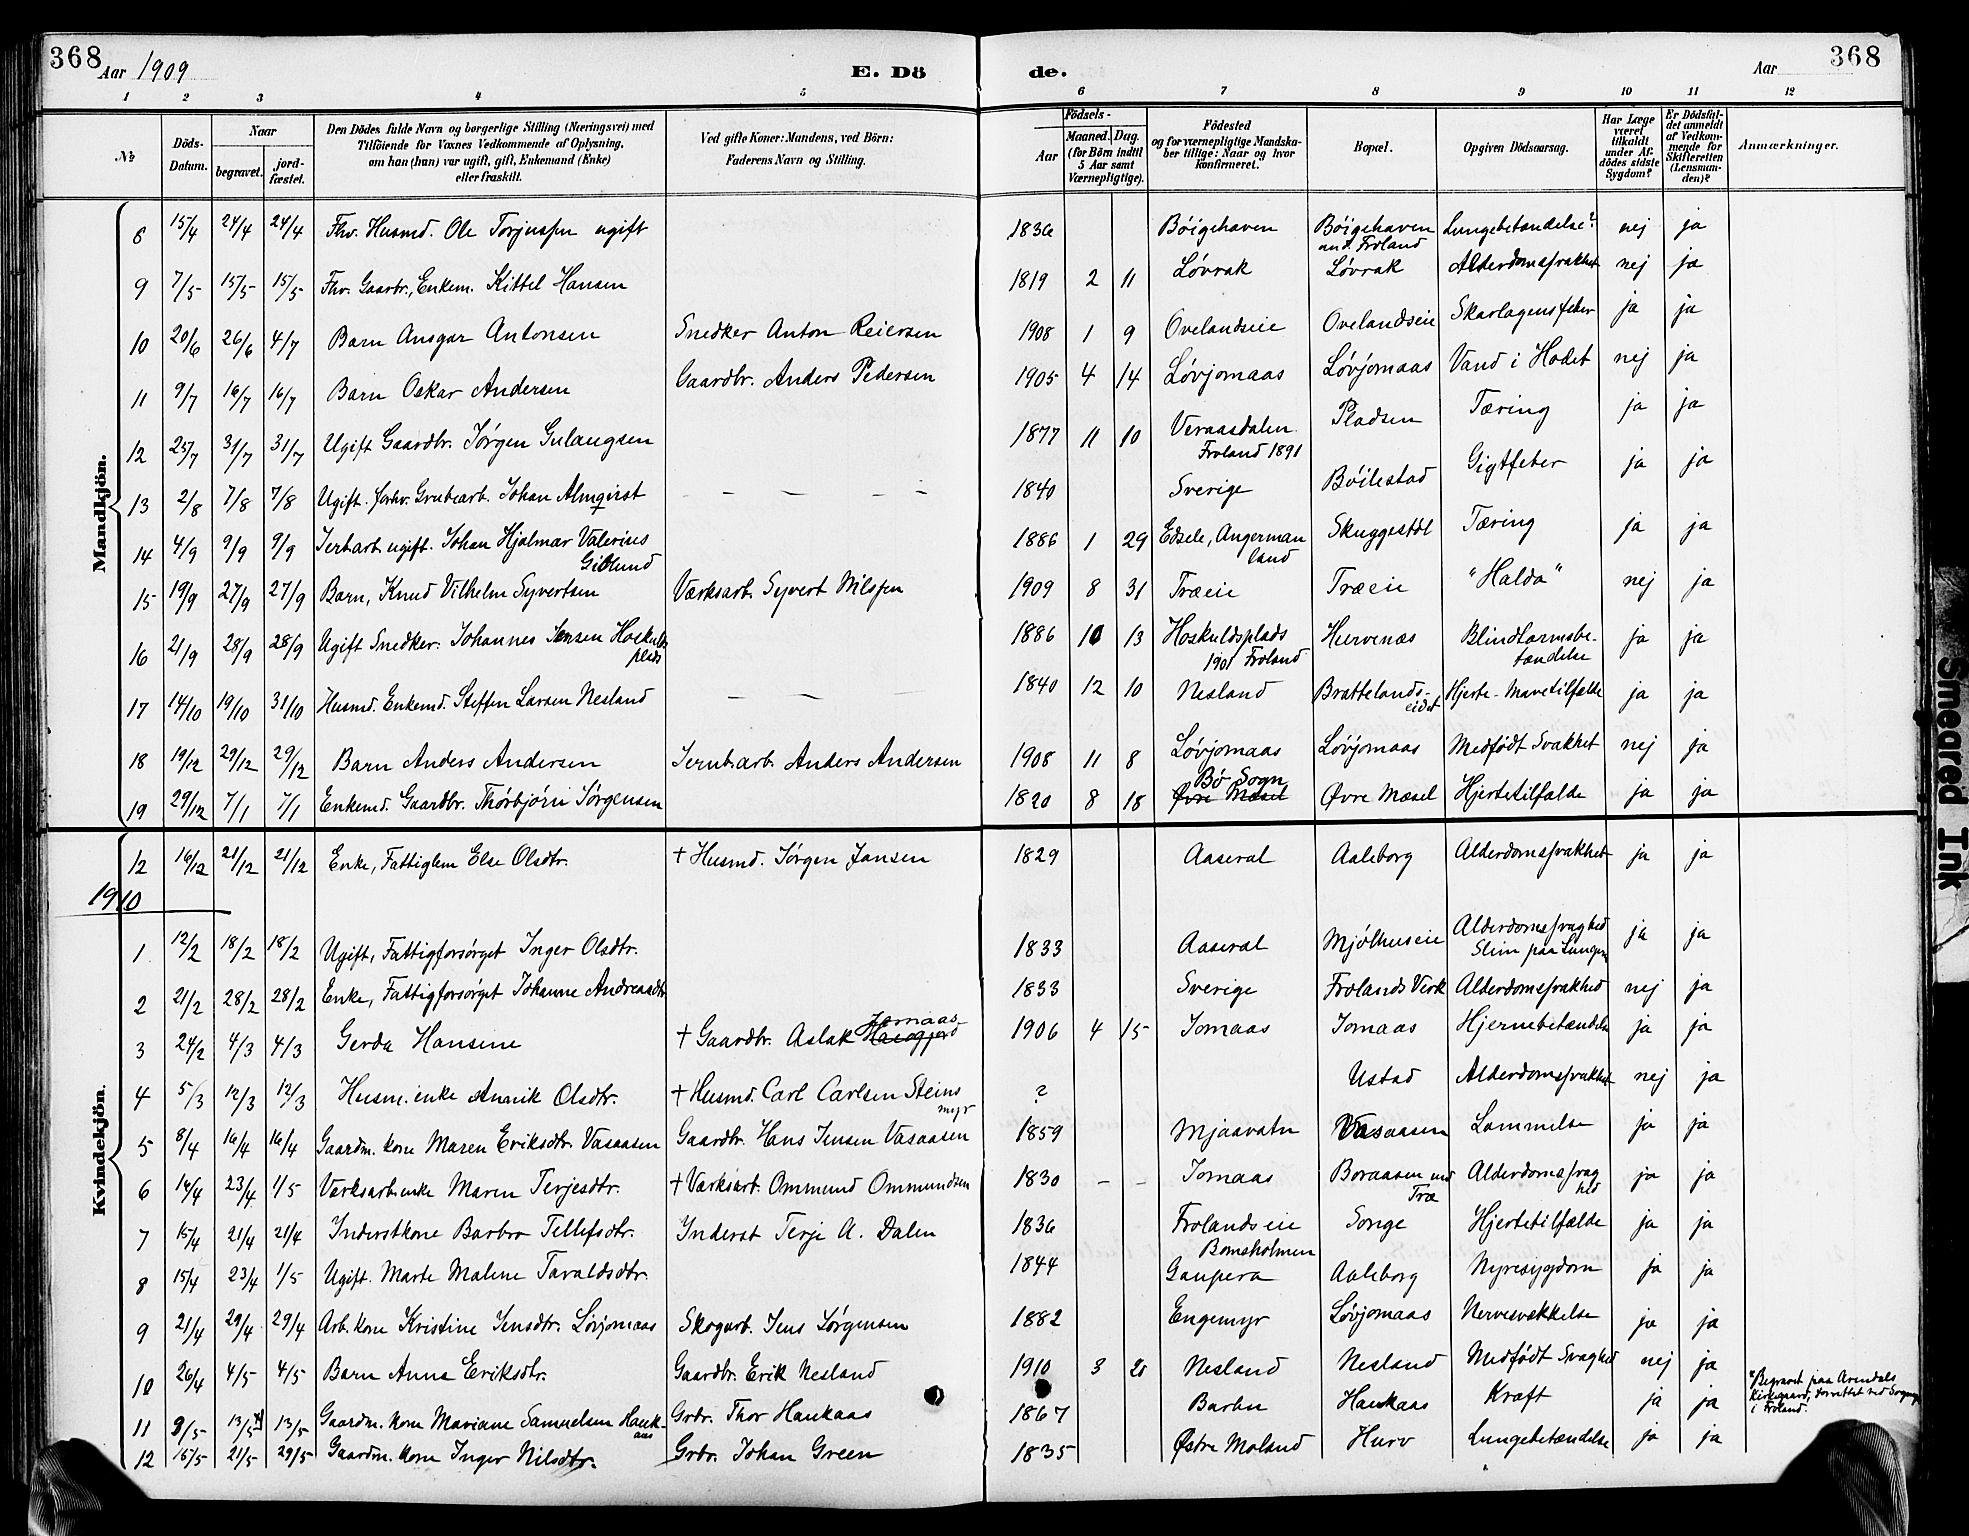 368 Aar 1909 E. Dö de. Aar 368
1 2 3 4 5 6 7 8 9 10 11 12
№ Döds-Datum. Naar begravet. jord-fæstet. Den Dödes fulde Navn og borgerlige Stilling (Næringsvei) med Tilföiende for Voxnes Vedkommende af Oplysning, om han (hun) var ugift, gift, Enkemand (Enke) eller fraskilt. Ved gifte Koner: Mandens, ved Börn: Faderens Navn og Stilling. Födsels- Aar Maaned. Dag. (for Börn indtil 5 Aar samt Værnepligtige). Födested og for værnepligtige Mandska-ber tillige: Naar og hvor konfirmeret. Bopæl. Opgiven Dödsaarsag. Har Læge været tilkaldt under Af-dödes sidste Sygdom? Er Dödsfal-det anmeldt af Vedkom-mende for Skifteretten (Lensman-den)? Anmærkninger.
Mandkjön.
6 15/4 24/4 24/4 Fhv. Husmd. Ole Torjussen ugift 1836 Bøigehaven Bøigehaven und. Froland Lungebetændelse? nej ja
9 7/5 15/5 15/5 Fhv. Gaardbr., Enkem. Kittel Hansen 1819 2 11 Løvrak Løvrak Alderdomssvakhet nej ja
10 20/6 26/6 4/7 Barn Ansgar Antonsen Snedker Anton Reiersen 1908 1 9 Ovelandseie Ovelandseie Skarlagensfeber ja ja
11 9/7 16/7 16/7 Barn Oskar Andersen Gaardbr. Anders Pedersen 1905 4 14 Løvjomaas Løvjomaas Vand i Hodet nej ja
12 25/7 31/7 31/7 Ugift Gaardbr. Jørgen Gulaugsen 1877 11 10 Veraasdalen Froland 1891 Pladsen Tæring ja ja
13 2/8 7/8 7/8 Ugift. forhv. Grubearb. Johan Almqirst – – – – 1840 Sverige Bøilestad Gigtfeber ja ja
14 4/9 9/9 9/9 Jernb.arb. ugift. Johan Hjalmar Valerius 1886 1 29 Edsele, Angerman land Skuggestøl Tæring ja ja
15 19/9 27/9 27/9 Barn, Knud Vilhelm Syvertsen Værksarb. Syvert Nilssen 1909 8 31 Træeie Træeie "Halda" nej ja
16 21/9 28/9 28/9 Ugift Snedker. Johannes Jensen Hoskulds plads 1886 10 13 Hoskuldsplads 1901 Froland Hurvenæs Blindtarmsbe-tændelse ja ja
17 14/10 19/10 31/10 Husmd. Enkemd. Steffen Larsen Nesland – – – 1840 12 10 Nesland Brattelands-eidet Hjerte- Mavetilfælde ja ja
18 19/12 29/12 29/12 Barn Anders Andersen Jernb.arb. Anders Andersen 1908 11 8 Løvjomaas Løvjomaas Medfødt Svakhet nej ja
19 29/12 7/1 7/1 Enkemd. Gaardbr. Thorbjørn Jørgensen 1820 8 18 Bø Sogn Øvre Mæsel Øvre Mæsel Hjertetilfælde ja ja
Kvindekjön.
12 16/12 21/12 21/12 Enke, Fattiglem Else Olsdtr. † Husmd. Jørgen Jansen 1829 Aaseral Aaleborg Alderdomssvakhet ja ja
1910
1 12/2 18/2 18/2 Ugift, Fattigforsørget Inger Olsdtr. 1833 Aaseral Mjølhuseie Alderdomssvaghed Slim paa Lungen ja ja
2 21/2 28/2 28/2 Enke, Fattigforsørget Johanne Andreasdtr 1833 Sverige Frolands Verk Alderdomssvakhed nej ja
3 24/2 4/3 4/3 Gerda Hansine † Gaardbr. Aslak Jomaas 1906 4 15 Jomaas Jomaas Hjernebetændelse ja ja
4 5/3 12/3 12/3 Husm. enke Annik Olsdtr. † Husmd. Carl Carlsen Steins myr ? Ustad Alderdomssvakhet nej ja
5 8/4 16/4 16/4 Gaardm. kone Maren Eriksdtr. Vasaasen Gaardbr. Hans Jensen Vasaasen 1859 Mjaavatn Vasaasen Lammelse ja ja
6 14/4 23/4 1/5 Værksarb. enke Maren Terjesdtr. † Værksarb. Ommund Ommundsen 1830 – – Jomaas Boraasen und Træ Alderdomssvag hed ja ja
7 15/4 21/4 21/4 Inderstkone Barbro Tellefsdtr. Inderst Terje A. Dalen 1836 Frolandseie Bomsholmen Songe Hjertetilfælde ja ja
8 15/4 23/4 1/5 Ugift. Marte Malene Tavaldsdtr. 1844 Gaupera Aaleborg Nyresygdom ja ja
9 21/4 29/4 29/4 Arb. kone Kristine Jensdtr. Løvjomaas Skogarb. Jens Jørgensen 1882 Engemyr Løvjomaas Nervesvækkelse ja ja
10 26/4 4/5 4/5 Barn Anna Eriksdtr. Gaardbr. Erik Nesland 1910 3 20 Nesland Nesland Medfødt Svaghed nej ja
11 8/5 13/5 13/5 Gaardm. kone Mariane Samuelsen Hauk-aas Grdr. Thor Haukaas 1867 Barbu Haukaas Kræft ja ja Begravet paa Arendals Kirkegaard, forrettet ved Sogn i Froland.
12 15/5 21/5 29/5 Gaardm. kone Inger Nilsdtr. Grdr. Johan Green 1835 Østre Moland Hurv Lungebetændelse ja ja
Smeared Ink